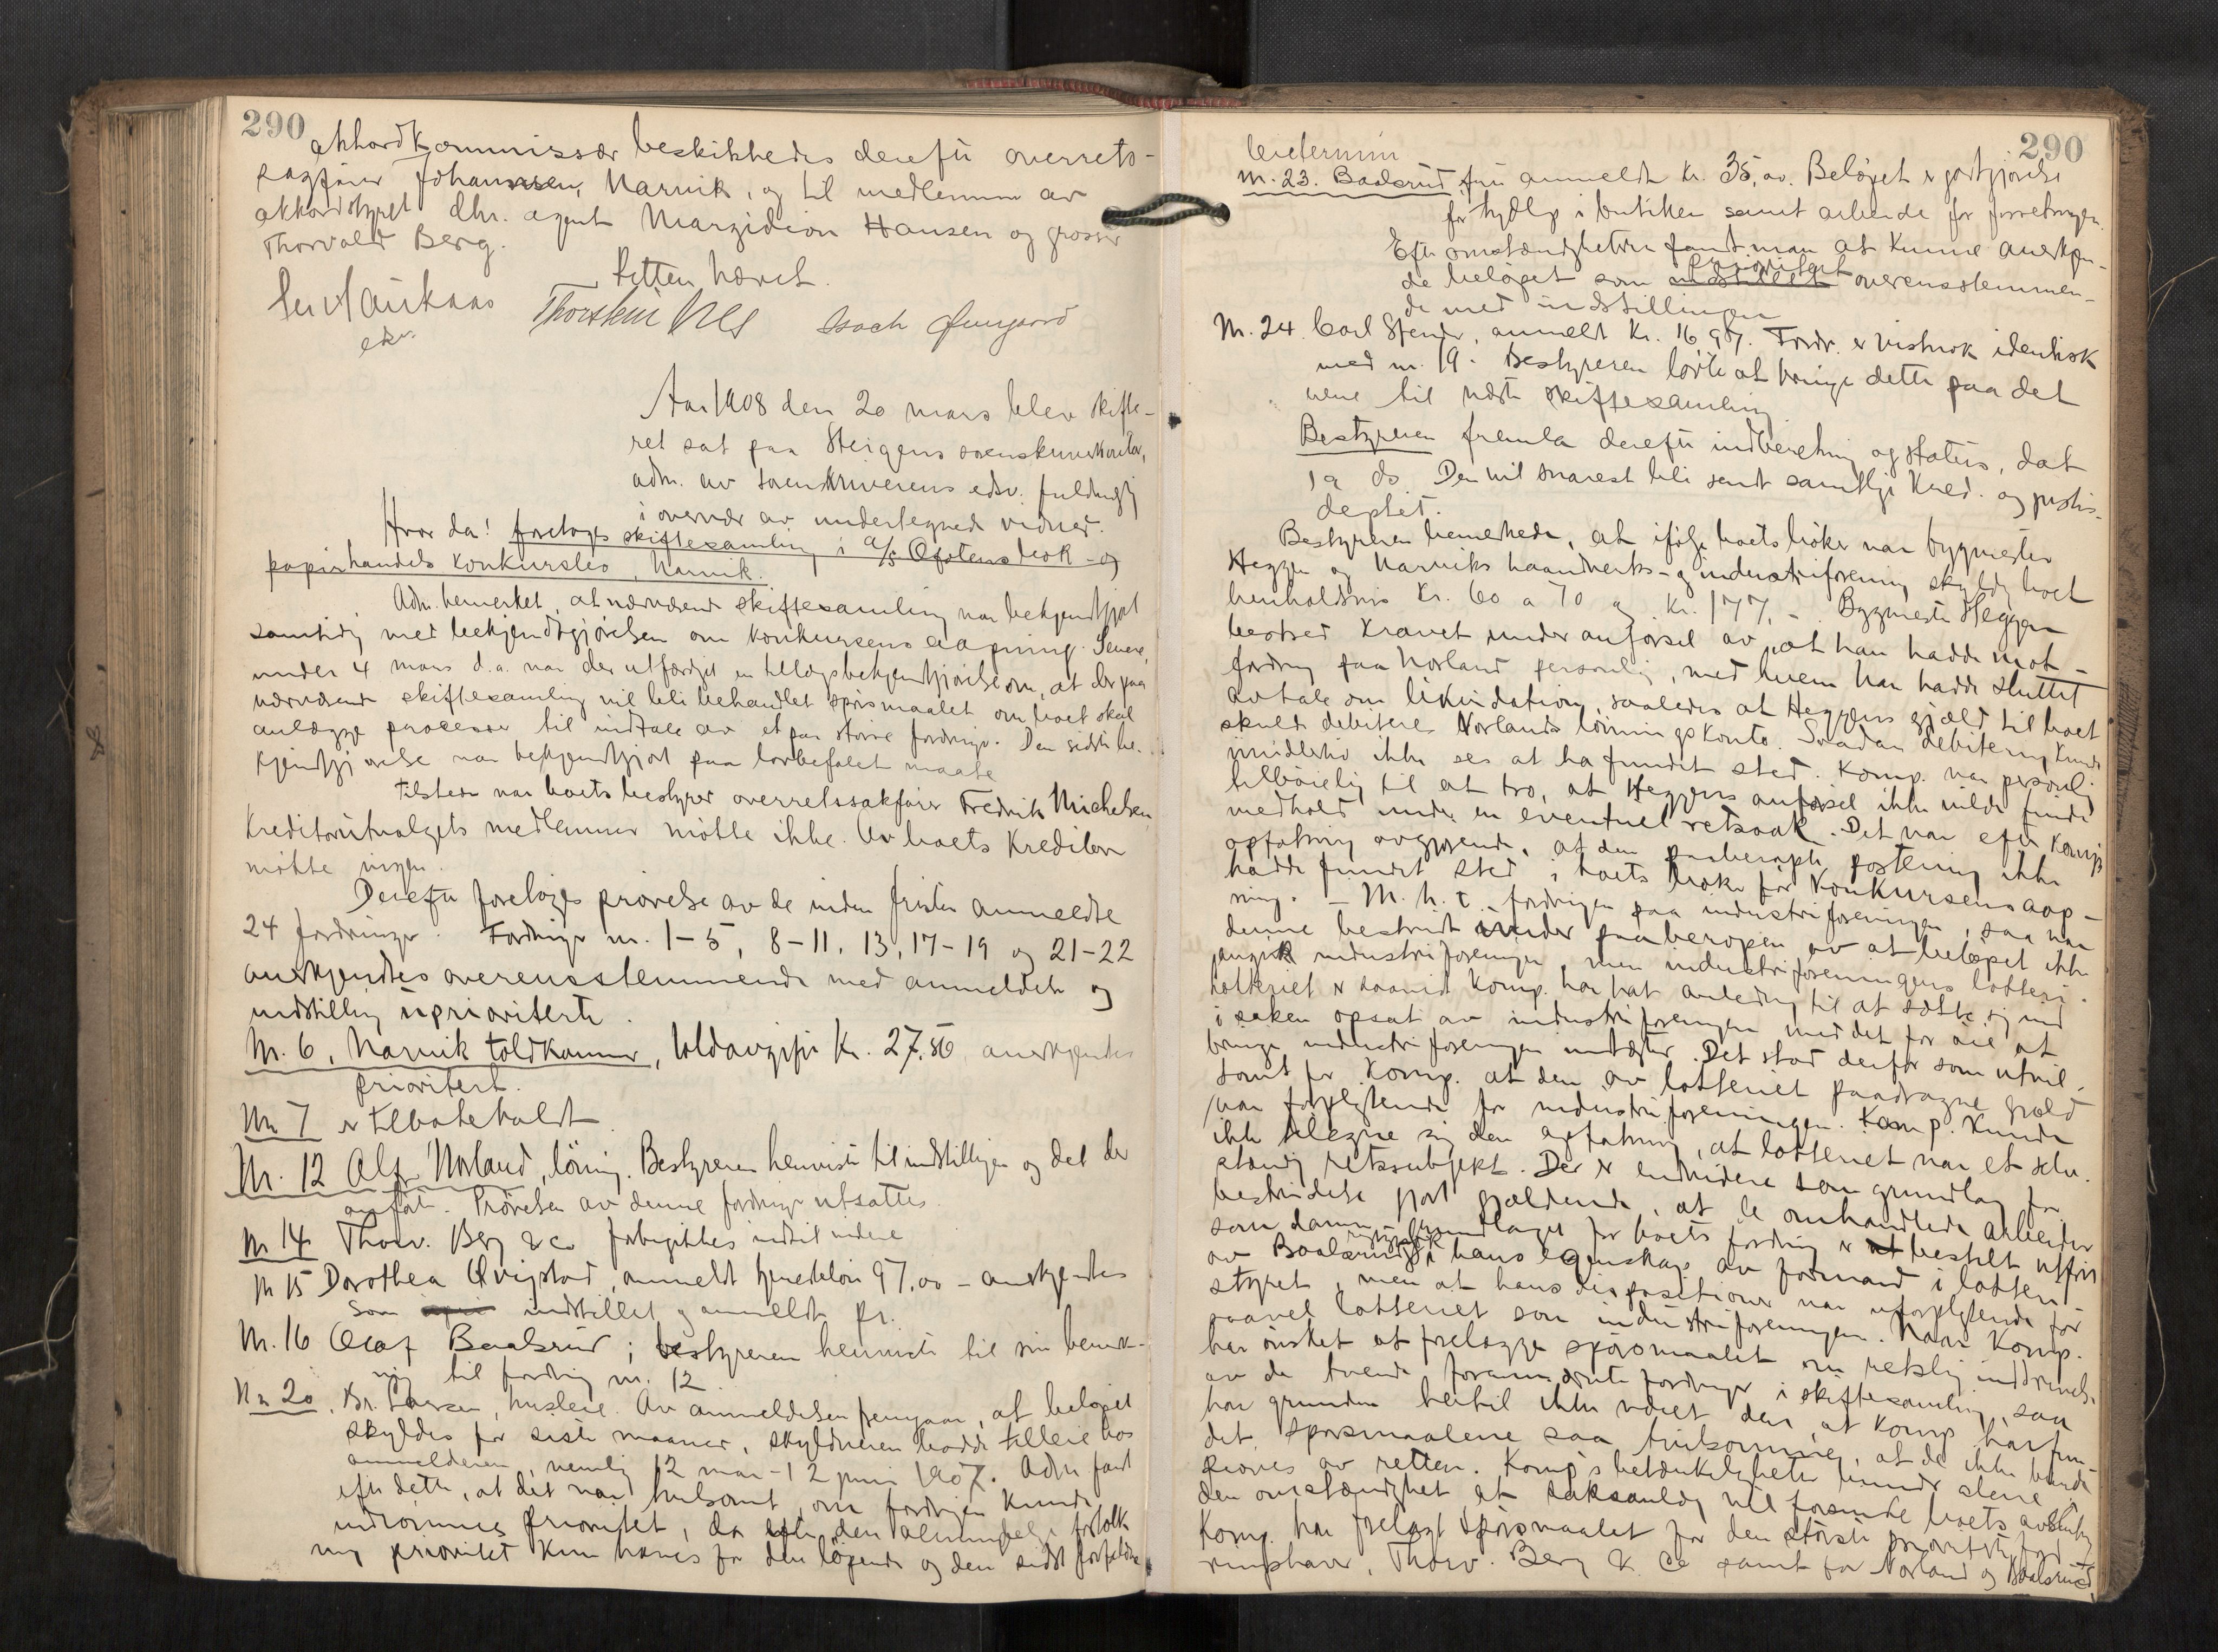 290
akkordkommissær beskikkedes derefter overrets-
sagfører Johannsen, Narvik, og til medlemmer av
akkordstyret dhr. agent Hansen og grosser
Thorvald Berg.
Retten hævet.
Aar 1908 den 20 mars blev skifte-
ret sat paa Steigens sorenskriverkontor,
adm. av sorenskriverens edsv. fuldmegtig
i overvær av undertegnede vidner.
Hvor da! foretoges skiftesamling i a/s Ofotens bok- og
papirhandels konkursbo, Narvik.
Adm. bemerket, at nærværende skiftesamling var bekjendtgjort
samtidig med bekjendtgjørelsen om konkursens aapning. Senere,
under 4 mars d.a. var der utfærdiget en tillægsbekjendtgjørelse om, at der paa
nærværende skiftesamling vil bli behandlet spørsmaalet om boet skal
anlægge processer til indtale av et par større fordringer. Den sidste be-
kjendtgjørelse var bekjendtgjort paa lovbefalet maate
Tilstede var boets bestyrer overretssakfører Fredrik Michelsen,
Kreditorutvalgets medlemmer møtte ikke. Av boets kreditorer
møtte ingen.
Derefter foretoges prøvelse av de inden fristen anmeldte
24 fordringer. Fordringer nr. 1-5, 8-11, 13, 17-19 og 21-22
anerkjendtes overensstemmende med anmeldelse og
indstilling uprioriterte.
Nr. 6, Narvik toldkammer, toldavgifter Kr. 27.50, anerkjendtes
prioritert.
Nr. 7 er tilbakekaldt.
Nr. 12 Alf Norland, lønning. Bestyreren henviste til indstillingen og det der
anførte. Prøvelsen av denne fordring utsattes.
Nr 14 Thorv. Berg & co forbigikkes indtil videre
Nr 15 Dorothea Qvigstad, anmeldt tjenesteløn 97,00 - anerkjendtes
som indstillet og anmeldt pr.
Nr. 16 Olaf Baalsrud; bestyreren henviste til sin bemerk-
ning til fordring nr. 12.
Nr 20, Br. Larsen, husleie. Av anmeldelsen fremgaar, at beløpet
skyldes for siste maaned, skyldneren hadde tilleie hos
anmelderen, nemlig 12 mai-12 juni 1907. Adm fandt
efter dette, at det var tvilsomt, om fordringen kunde
indrømmes prioritet, da efter den almindelige fortolk-
ning prioritet kun haves for den løpende og den sidst forfaldne
290
leietermin
Nr. 23. Baalsrud, fru anmeldt kr. 35,00. Beløpet er godtgjørelse
for hjælp i butiken samt arbeide for forretningen.
Efter omstændigheterne fandt man at kunne anerkjen-
de beløpet som prioritert overensstemmen-
de med indstillingen
Nr. 24. Carl Stender, anmeldt kr. 16,97. Fordr. er vistnok identisk
med nr. 19. Bestyreren lovte at bringe dette paa det
rene til næste skiftesamling
Bestyreren fremla derefter indberetning og status, dat
19 ds. Den vil snarest bli sendt samtlige kred. og justis-
deptet.
Bestyreren bemerkede, at ifølge boets bøker var bygmester
Heggen og Narviks haandverks- og industriforening skyldig boet
henholdsvis Kr. 60 a 70 og kr. 177,-. Bygmester Heggen
bestred kravet under anførsel av, at han hadde mot-
fordring paa Norland personlig, med hvem han hadde sluttet
avtale om likvidation, saaledes at Heggens gjæld til boet
skulde debiteres Norlands lønningskonto. Saadan debitering kunde
imidlertid ikke sees at ha fundet sted. Komp. var personl.
tilbøielig til at tro, at Heggens anførsel ikke vilde finde
medhold under en eventuel retssak. Det var efter komp's
opfatning avgjørende, at den paaberopte postering ikke
hadde fundet sted i boets bøker før konkursens aap-
ning. - M. h. t. fordringen paa industriforeningen, saa var
denne bestridt under paaberopen av at beløpet ikke
angik industriforeningen, men industriforeningens lotteri.
Lotteriet er saavidt komp. har hat anledning til at sætte sig ind
i saken opsat av industriforeningen med det for øie at
bringe industriforeningen indtægter. Det stod derfor som utvil-
somt for Komp. at den av lotteriet paadragne gjæld
var forpligtende for industriforeningen. Komp. kunde
ikke tilegne sig den opfatning, at lotteriet var et selv-
stændig retssubjekt. Der er endvidere som grundlag for
bestridelse gjort gjældende, at de omhandlede arbeider
som danner grundlaget for boets fordring er bestilt utført
av Baalsrud i hans egenskap av formand i lotteri-
styret, men at hans dispositioner var uforpligtende for
saavel lotteriet som industriforeningen. Naar Komp.
har ønsket at forelægge spørsmaalet om retslig inddrivelse
av de tvende forannævnte fordringer i skiftesamling, saa
har grunden hertil ikke været den, at Komp har fun-
det spørsmaalene saa tvilsomme, at de ikke burde
prøves av retten. Komp's betænkeligheter bunder alene i
den omstændighet at saksanlæg vil forsinke boets avslutning
Komp. har forelagt spørsmaalet for den største prioriterte ford-
ringshaver, Thorv. Berg & Co samt for Norland og Baalsrud,